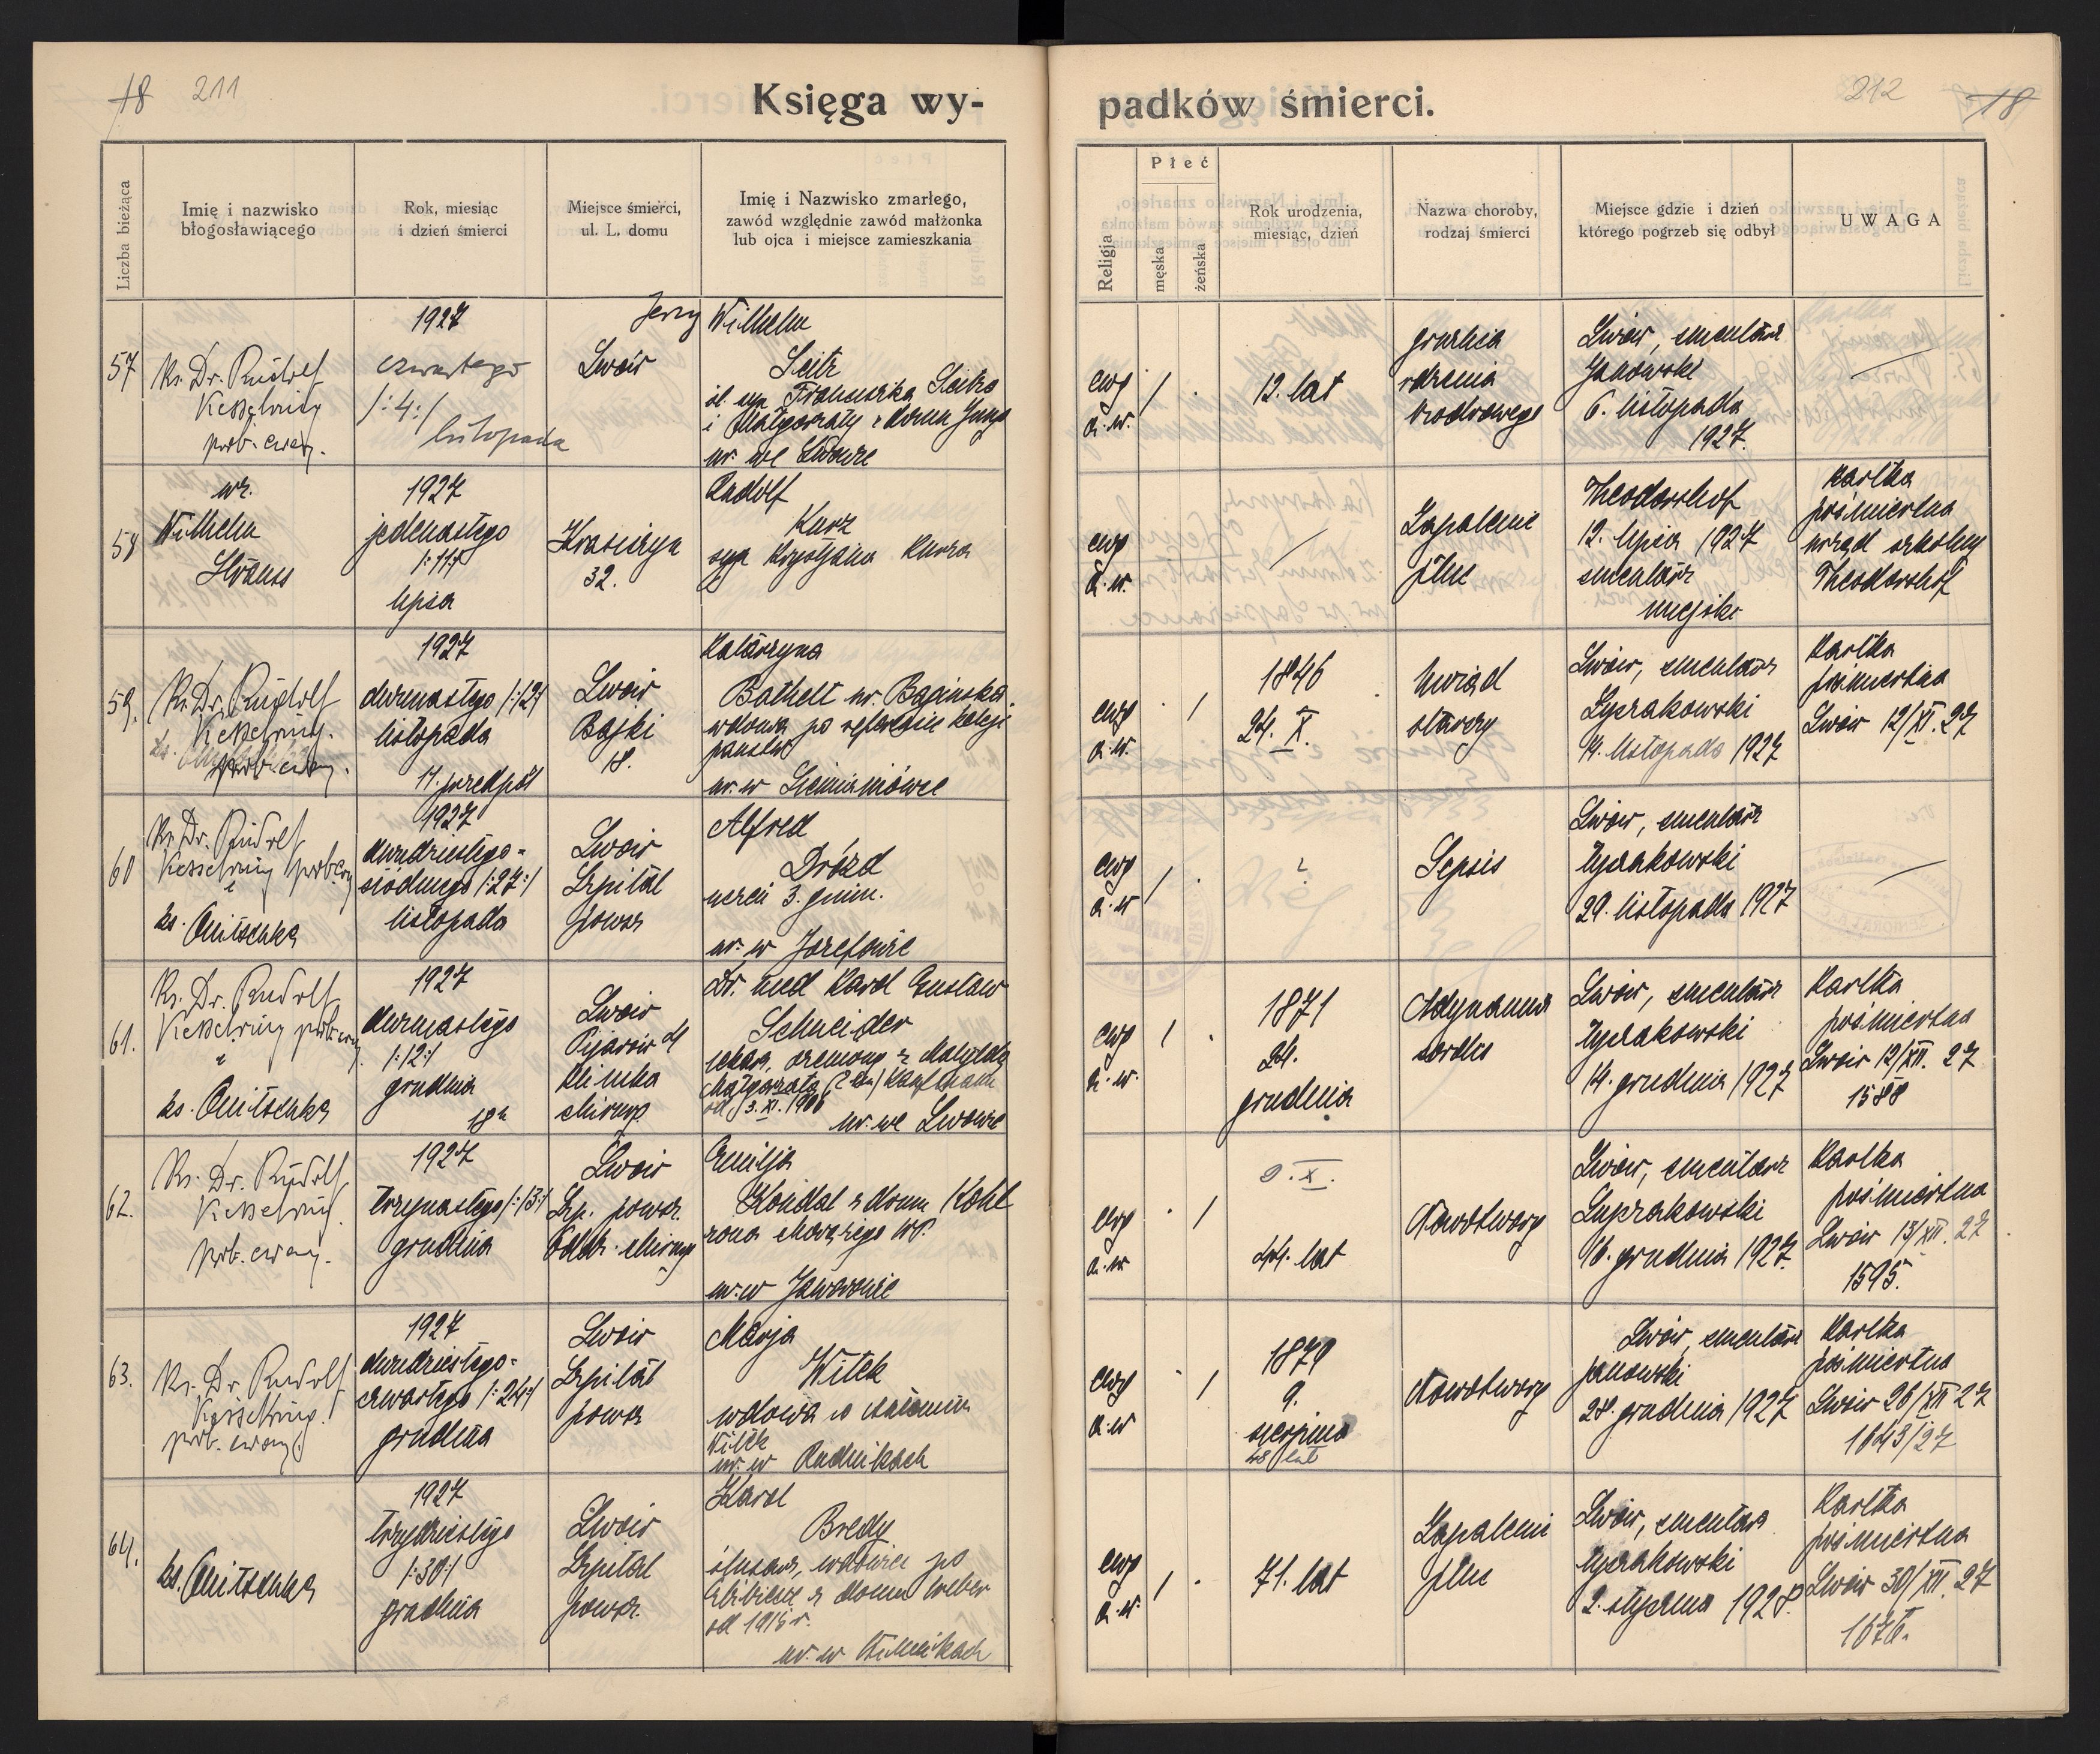 18 211
Księga wy-
padków śmierci.
212 18
Liczba bieżąca
Imię i nazwisko
błogosławiącego
Rok, miesiąc
i dzień śmierci
Miejsce śmierci,
ul. L. domu
Imię i Nazwisko zmarłego,
zawód względnie zawód małżonka
lub ojca i miejsce zamieszkania
Religja
Płeć
męska
żeńska
Rok urodzenia,
miesiąc, dzień
Nazwa choroby,
rodzaj śmierci
Miejsce gdzie i dzień
którego pogrzeb się odbył
UWAGA
57
Ks. Dr. Rudolf
Kesselring
prob. ewang.
1927
czwartego
/:4:/
listopada
Lwów
Jerzy Wilhelm
Seitz
śl. syn Franciszka Seitza
i Małgorzaty z domu Jung
ur. we Lwowie
ewg
a. w.
/ .
12. lat
gruźlica
rdzenia
Lwów, cmentarz
Janowski
6. listopada
1927.
58
wz.
Wilhelm
Strauss
1927
jedenastego
/:11:/
lipca
32.
Rudolf
Kurz
syn Krystjana Kurza
ewg
a. w.
Zapalenie
płuc
Theodorshof
12. lipca 1927
cmentarz
miejski
Kartka
pośmiertna
urząd szkolny
Theodorshof
59.
Ks. Dr. Rudolf
Kesselring.
prob. ewang.
1927
dwunastego /:12:/
listopada
11. przedpoł
Lwów
Bajki
18.
Katarzyna
Bathelt ur. Bagińska
wdowa po kolei
państw
ur. w Siemianówce
ewg
a. w.
. /
1846
24. X.
Uwiąd
starczy
Lwów, cmentarz
Łyczakowski
14. listopada 1927
Kartka
pośmiertna
Lwów 12/XI. 27
60
Ks. Dr. Rudolf
Kesselring prob. ew
i
ks. Mitschke
1927
dwudziestego-
siódmego /:27:/
listopada
Lwów
Szpital
powsz
Alfred
Drózd
uczeń 3. gimn.
ur. w Józefowie
ewg
a. w
/ .
?
Sepsis
Lwów, cmentarz
Łyczakowski
29. listopada 1927
61.
Ks. Dr. Rudolf
Kesselring prob. ewang.
i
ks. Mitschke
1927
dwunastego
/:12:/
grudnia
18h
Lwów
Pijarów 4
klinika
chirurg.
Dr. med Karol Gustaw
Schneider
lekarz, ożeniony z Matyldą
Małgorzatą Kauffmann
od 3. XI. 1906
ur. we Lwowie
ewg
a. w.
/ .
1871
24.
grudnia
Adynamia
cordis
Lwów, cmentarz
Łyczakowski
14. grudnia 1927
Kartka
pośmiertna
Lwów 12/XII. 27
1588
62.
Ks. Dr. Rudolf
Kesselring.
prob. ewang.
1927
trzynastego /:13:/
grudnia
Lwów
Szp. powsz.
Oddz. chirurg
Emilja
Koudal z domu Kohl
żona chorążego WP.
ur. w Jaworowie
ewg
a. w
. /
2. X.
44. lat
Nowotwory
Lwów, cmentarz
Łyczakowski
16. grudnia 1927.
Kartka
pośmiertna
Lwów 13/XII. 27
1595.
63.
Ks. Dr. Rudolf
Kesselring.
prob. ewang.
1927
dwudziestego-
czwartego /:24:/
grudnia
Lwów
Szpital
powsz
Marja
Witek
wdowa po Antonim
Witek
ur. w Rudnikach
ewg
a. w
. /
1879
9.
sierpnia
48 lat
Nowotwory
Lwów, cmentarz
janowski
28. grudnia 1927
Kartka
pośmiertna
Lwów 26/XII 27
1643/27
64.
ks. Mitschke
1927
trzydziestego
/:30:/
grudnia
Lwów
Szpital
powsz.
Karol
Bredy
ślusarz, wdowiec po
Elżbiecie z domu Weber
od 1915 r.
ur. w Winnikach
ewg
a. w.
/ .
71. lat
Zapalenie
płuc
Lwów, cmentarz
Łyczakowski
2. stycznia 1928.
Kartka
pośmiertna
Lwów 30/XII. 27
1676.